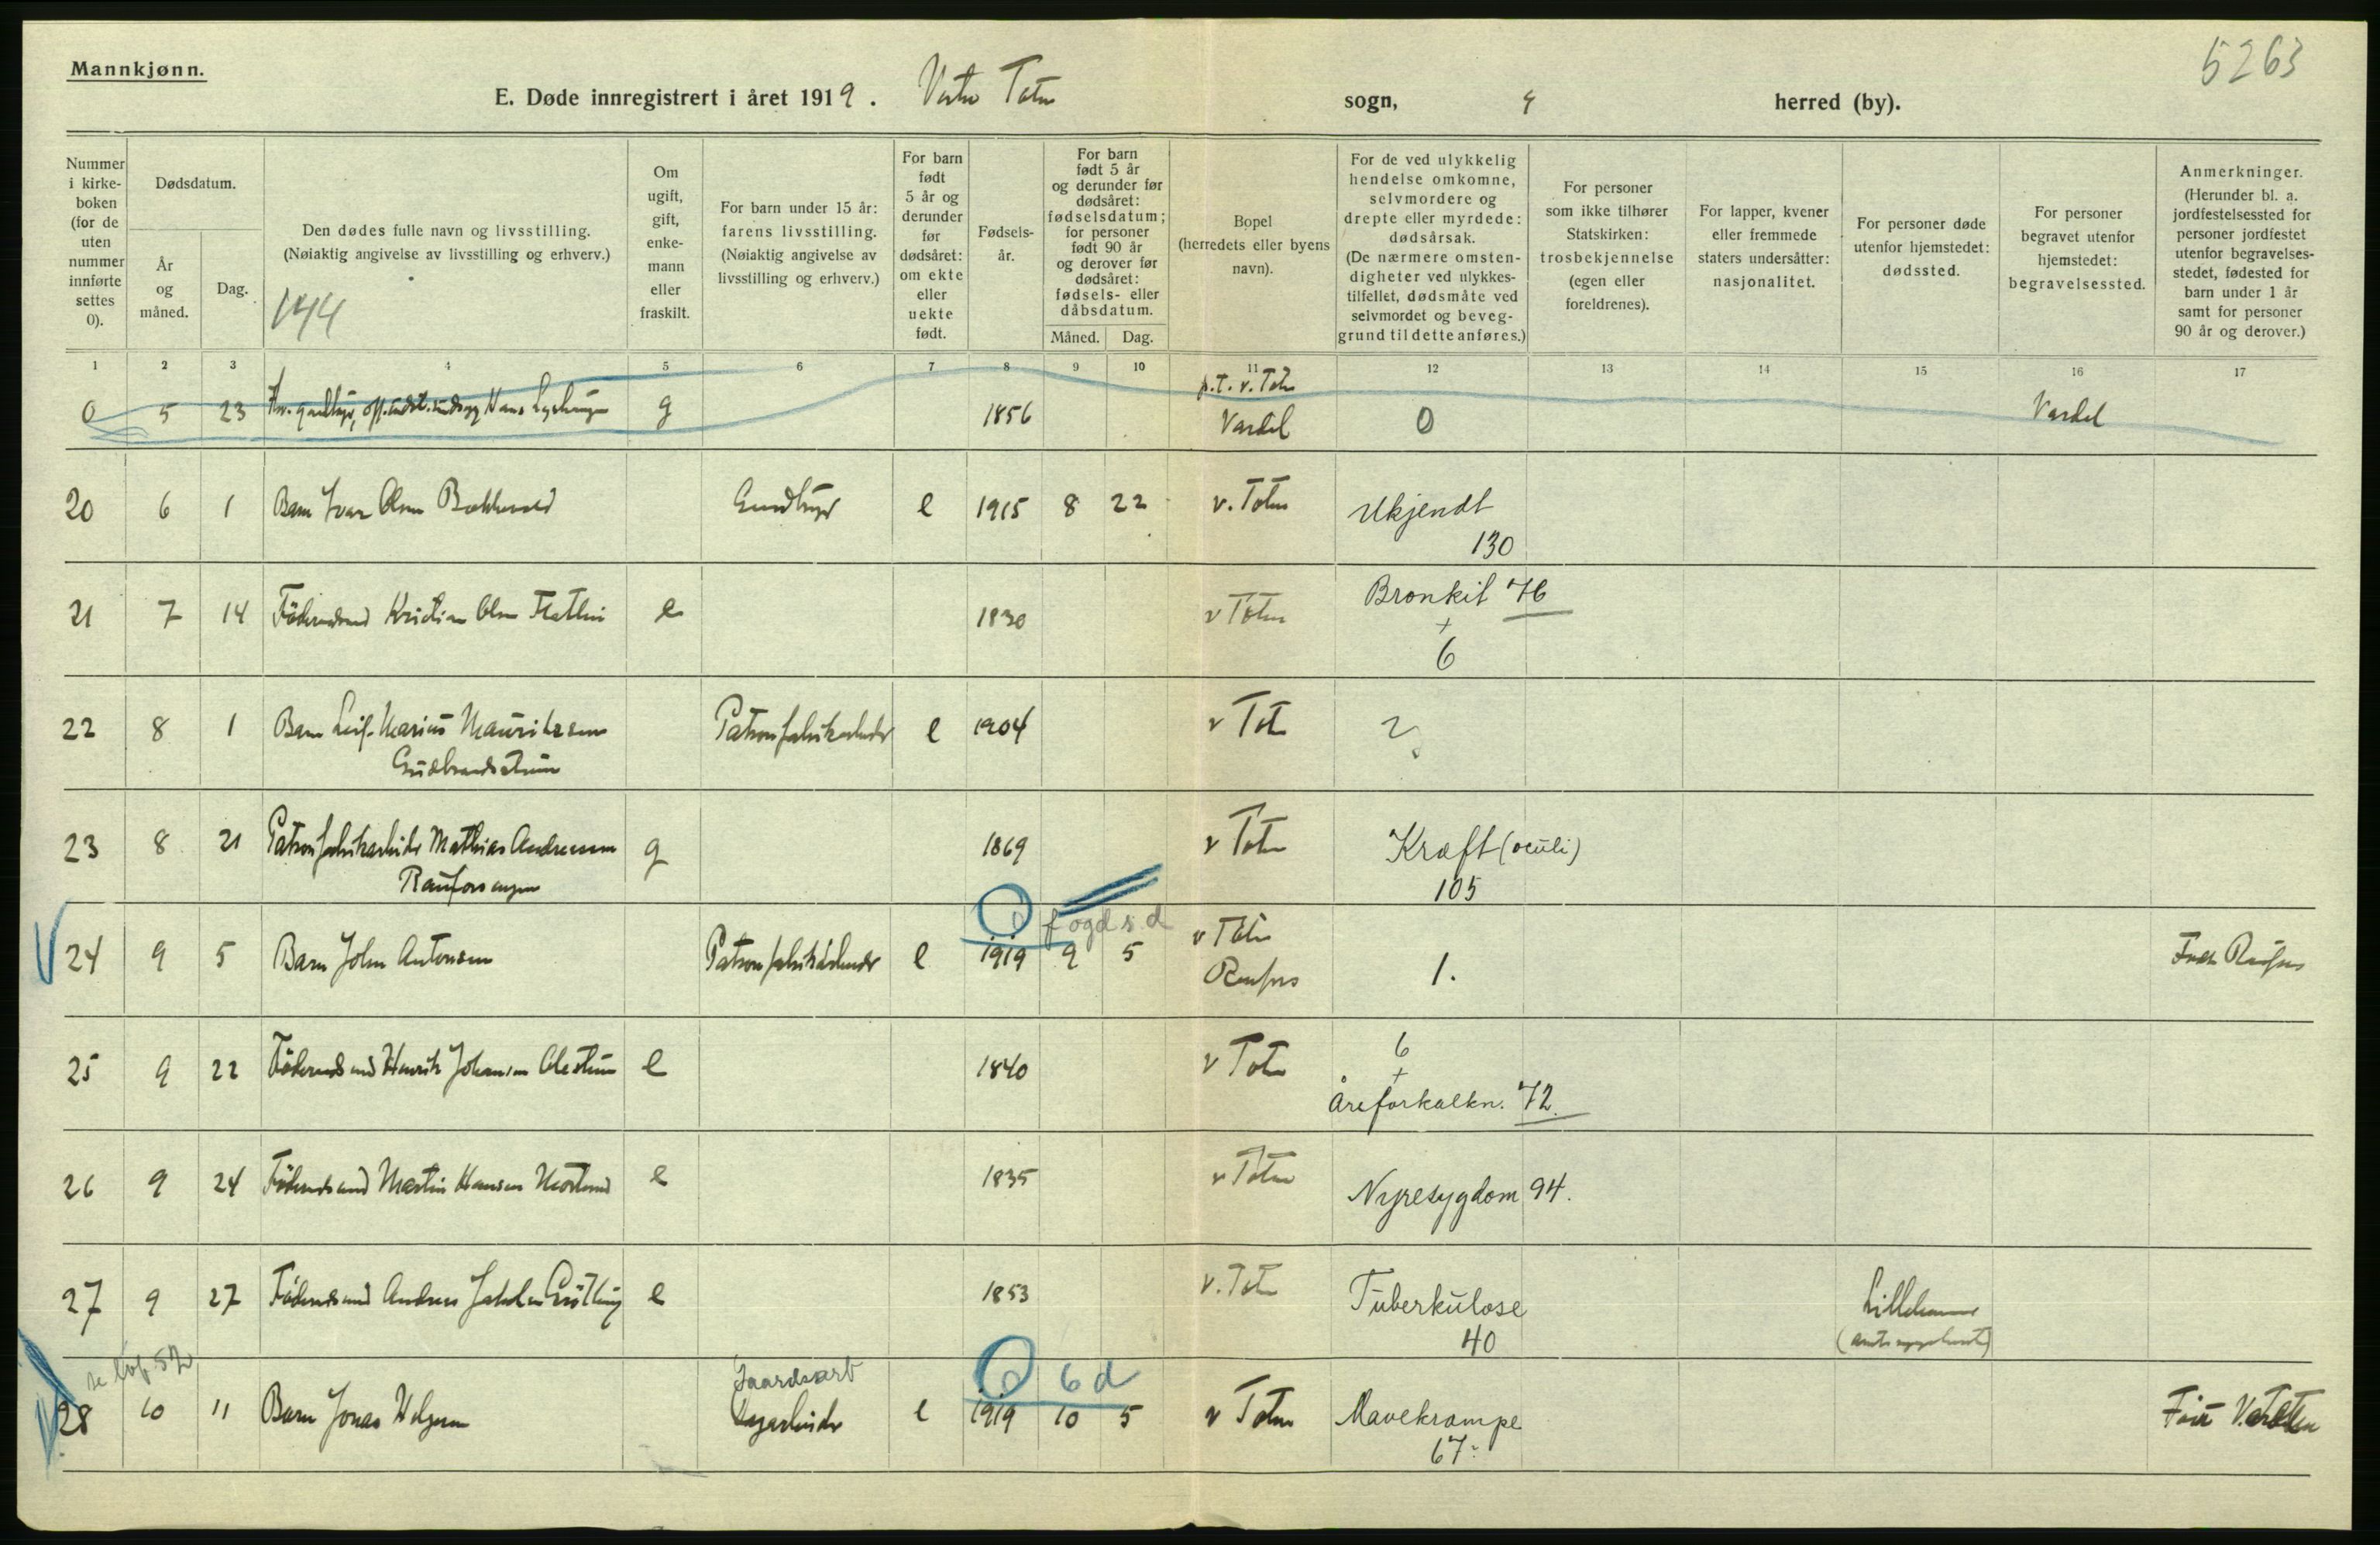 5263
Mannkjønn.
E. Døde innregistrert i året 1919. Vestre Toten sogn, herred (by).
Nummer i kirke-boken (for de uten nummer innførte settes 0).
Dødsdatum.
År og måned.
Dag.
Den dødes fulle navn og livsstilling.
(Nøiaktig angivelse av livsstilling og erhverv.)
144
Om ugift, gift, enke-mann eller fraskilt.
For barn under 15 år: farens livsstilling.
(Nøiaktig angivelse av livsstilling og erhverv.)
For barn født 5 år og derunder før dødsåret: om ekte eller uekte født.
Fødsels-år.
For barn født 5 år og derunder før dødsåret: fødselsdatum; for personer født 90 år og derover før dødsåret: fødsels- eller dåbsdatum.
Måned. Dag.
Bopel (herredets eller byens navn).
For de ved ulykkelig hendelse omkomne, selvmordere og drepte eller myrdede: dødsårsak.
(De nærmere omsten-digheter ved ulykkes-tilfellet, dødsmåte ved selvmordet og beveg-grund til dette anføres.)
For personer som ikke tilhører Statskirken: trosbekjennelse (egen eller foreldrenes).
For lapper, kvener eller fremmede staters undersåtter: nasjonalitet.
For personer døde utenfor hjemstedet: dødssted.
For personer begravet utenfor hjemstedet: begravelsessted.
Anmerkninger.
(Herunder bl. a. jordfestelsessted for personer jordfestet utenfor begravelses-stedet, fødested for barn under 1 år samt for personer 90 år og derover.)
1 2 3 4 5 6 7 8 9 10 11 12 13 14 15 16 17
p.t. v. Toten
0 5 23 Hans g 1856 Vardal 0 Vardal
20 6 1 Barn Ivar Olsen e 1915 8 22 v. Toten Ukjendt
130
21 7 14 Föderaadsmand Kristian Olsen e 1830 v Toten Bronkit 76
+
6
22 8 1 Barn Leif Marius Mauritzsen Patronfabrikarbeider e 1904 v Toten ?
Gudbrandsstuen
23 8 21 Patronfabrikarbeider Mathias Andreassen g 1869 v Toten Kræft (oculi)
Raufossengen 105
d f og d s. d
24 9 5 Barn John Antonsen Patronfabrikarbeider e 1919 9 5 v Toten Raufoss 1. Raufoss
25 9 22 Föderaadsmand Henrik Johansen e 1840 v Toten 6
+
Åreforkalkn. 72.
26 9 24 Föderaadsmand Martin Hansen e 1835 v Toten Nyresygdom 94.
27 9 27 Föderaadsmand Andreas e 1853 v. Toten Tuberkulose Lillehammer
40
se 52 Gaardsarb d 6 d
28 10 11 Barn Jonas e 1919 10 5 v Toten Mavekrampe V. Toten
67.